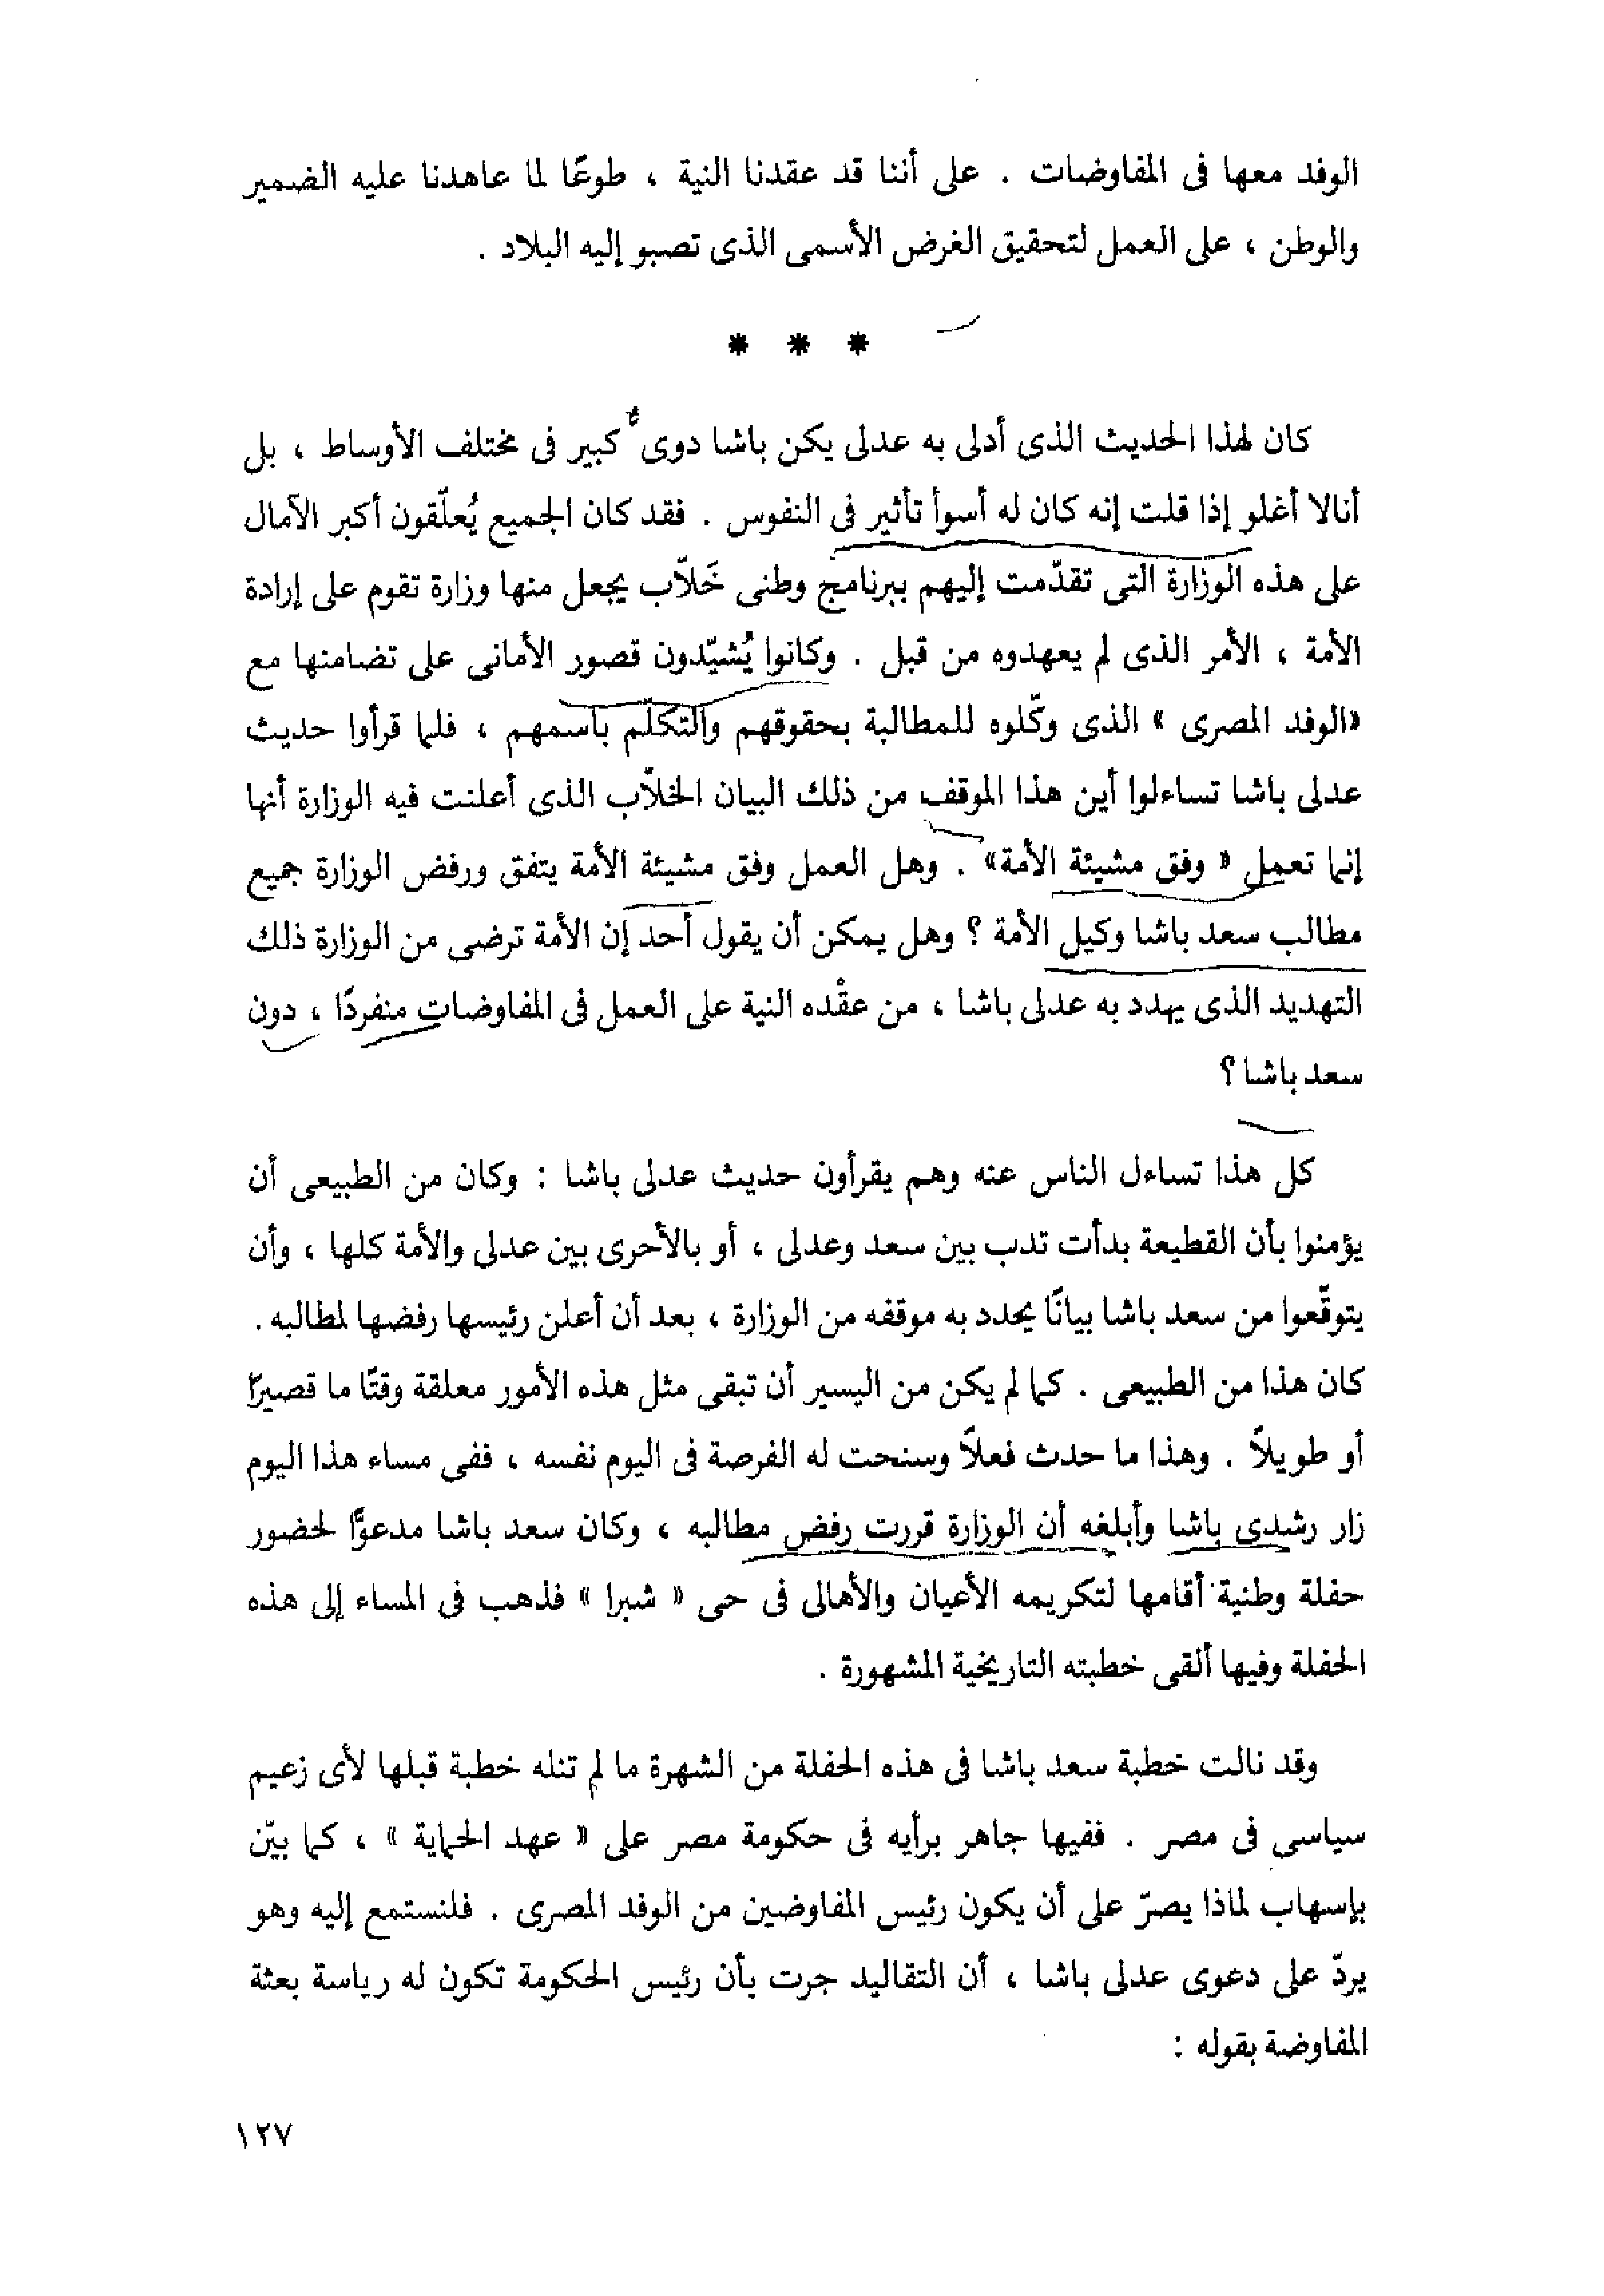 الوفد معها فى المفاوضات . على أننا قد عقدنا النية ، طوعًا لما عاهدنا عليه الضمير
والوطن ، على العمل لتحقيق الغرض الأسمى الذى تصبو إليه البلاد .
* * *
كان لهذا الحديث الذى أدلى به عدلى يكن باشا دوى كبير فى مختلف الأوساط ، بل
أنالا أغلو إذا قلت إنه كان له أسوأ تأثير فى النفوس . فقد كان الجميع يُعلّقون أكبر الآمال
على هذه الوزارة التى تقدّمت إليهم ببرنامج وطنى خَلاّب يجعل منها وزارة تقوم على إرادة
الأمة ، الأمر الذى لم يعهدوه من قبل . وكانوا يُشيّدون قصور الأمانى على تضامنها مع
«الوفد المصرى » الذى وكّلوه للمطالبة بحقوقهم والتكلّم بأسمهم ، فلما قرأوا حديث
عدلى باشا تساءلوا أين هذا الموقف من ذلك البيان الخلاّب الذى أعلنت فيه الوزارة أنها
إنما تعمل « وفق مشيئة الأمة» . وهل العمل وفق مشيئة الأمة يتفق ورفض الوزارة جميع
مطالب سعد باشا وكيل الأمة ؟ وهل يمكن أن يقول أحد إن الأمة ترضى من الوزارة ذلك
التهديد الذى يهدد به عدلى باشا ، من عقْده النية على العمل فى المفاوضات منفردًا ، دون
سعد باشا ؟
كل هذا تساءل الناس عنه وهم يقرأون حديث عدلى باشا : وكان من الطبيعى أن
يؤمنوا بأن القطيعة بدأت تدب بين سعد وعدلى ، أو بالأحرى بين عدلى والأمة كلها ، وأن
يتوقّعوا من سعد باشا بيانًا يحدد به موقفه من الوزارة ، بعد أن أعلن رئيسها رفضها لمطالبه .
كان هذا من الطبيعى . كما لم يكن من اليسير أن تبقى مثل هذه الأمور معلقة وقتًا ما قصيرًا
أو طويلاً . وهذا ما حدث فعلاً وسنحت له الفرصة فى اليوم نفسه ، ففى مساء هذا اليوم
زار رشدى باشا وأبلغه أن الوزارة قررت رفض مطالبه ، وكان سعد باشا مدعوًّا لحضور
حفلة وطنية أقامها لتكريمه الأعيان والأهالى فى حى « شبرا » فذهب فى المساء إلى هذه
الحفلة وفيها ألقى خطبته التاريخية المشهورة .
وقد نالت خطبة سعد باشا فى هذه الحفلة من الشهرة ما لم تنله خطبة قبلها لأى زعيم
سياسى فى مصر . ففيها جاهر برأيه فى حكومة مصر على « عهد الحماية » ، كما بيّن
بإسهاب لماذا يصرّ على أن يكون رئيس المفاوضين من الوفد المصرى . فلنستمع إليه وهو
يردّ على دعوى عدلى باشا ، أن التقاليد جرت بأن رئيس الحكومة تكون له رياسة بعثة
المفاوضة بقوله :
١٢٧